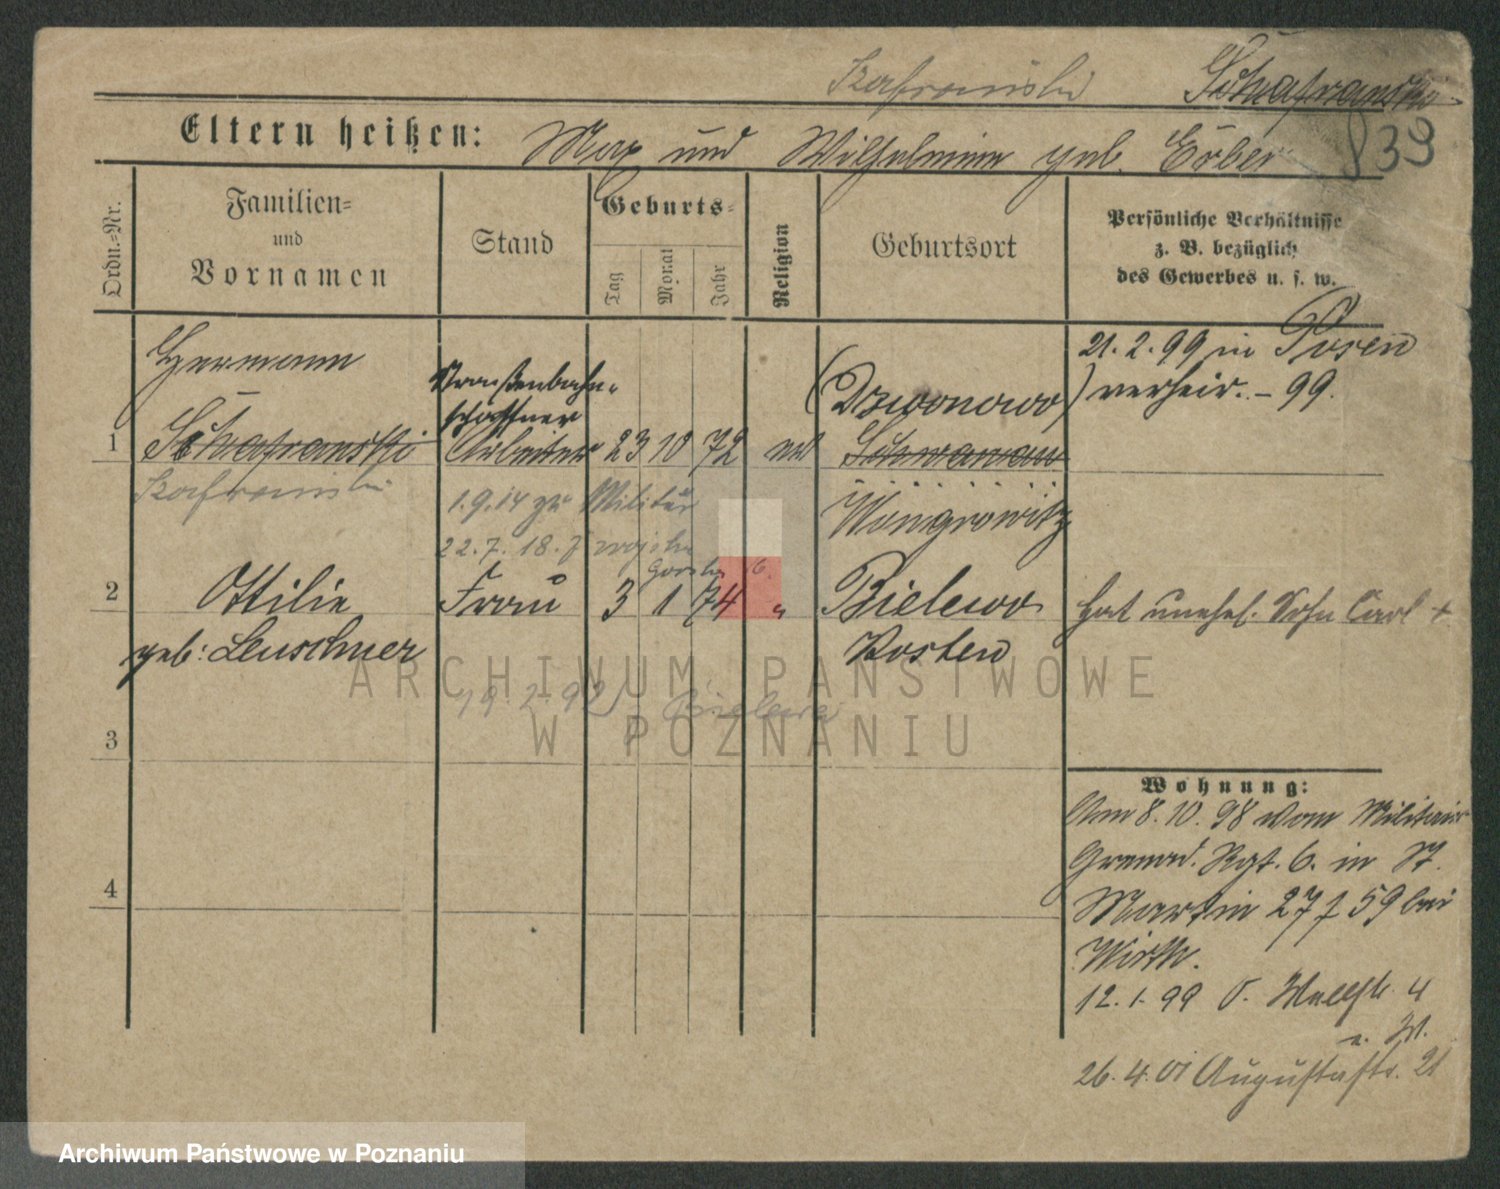 Szafranski Schafranski
Eltern heißen: Max und Wilhelmine geb. Erber 839
Ordn.=Nr.
Familien=
und
Vornamen
Stand
Geburts=
Tag
Monat
Jahr
Religion
Geburtsort
Persönliche Verhältnisse
z. B. bezüglich
des Gewerbes u. s. w.
Hermann
1 Schafranski
Szafranski
Straßenbahn-
schaffner
Arbeiter 23 10 72
(Dzwonowo)
Wongrowitz
21. 2. 99 in Posen
verheir. - 99.
1.9.14 zu Militär
22.7.18.
2 Ottilie Frau 3 1 74 " Bielewo
geb: Leuschner Kosten
hat unehel. Sohn Carl +
19.2.92 Bielewo
3
4
Wohnung:
Am 8. 10. 98 vom Militair
Grenad. Rgt. 6. in St.
Martin 27 f 59 bei
Wirth.
12. 1. 99 O. Wallstr. 4
26. 4. 01 Augustastr. 21
ARCHIWUM PAŃSTWOWE
W POZNANIU
Archiwum Państwowe w Poznaniu